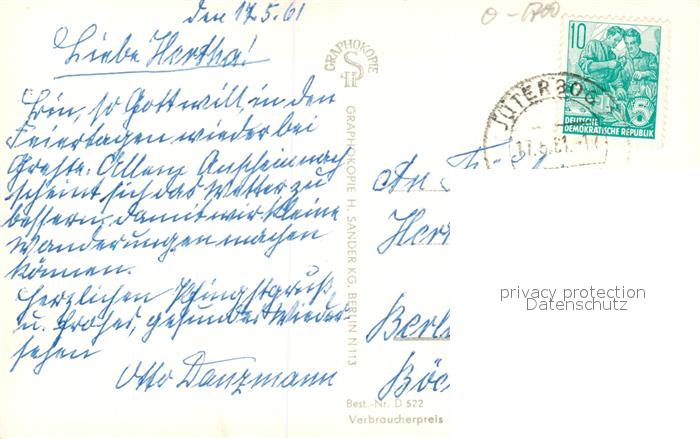 den 17.5.61
Liebe Hertha!
Bin, so Gott will, in den
Feiertagen wieder bei
Grete. Allem Anschein nach
scheint sich das Wetter zu
bessern, damit wir kleine
Wanderungen machen
können.
Herzlichen Pfingstgruß
u. frohes, gesundes Wieder
sehen
Otto Danzmann
GRAPHOKOPIE
SH
GRAPHOKOPIE H. SANDER KG. BERLIN N 113
O-1700
10
DEUTSCHE
DEMOKRATISCHE REPUBLIK
JÜTERBOG
17.5.61.-17
An
Her
Berl
Böc
privacy protection
Datenschutz
Best.-Nr. D 522
Verbraucherpreis